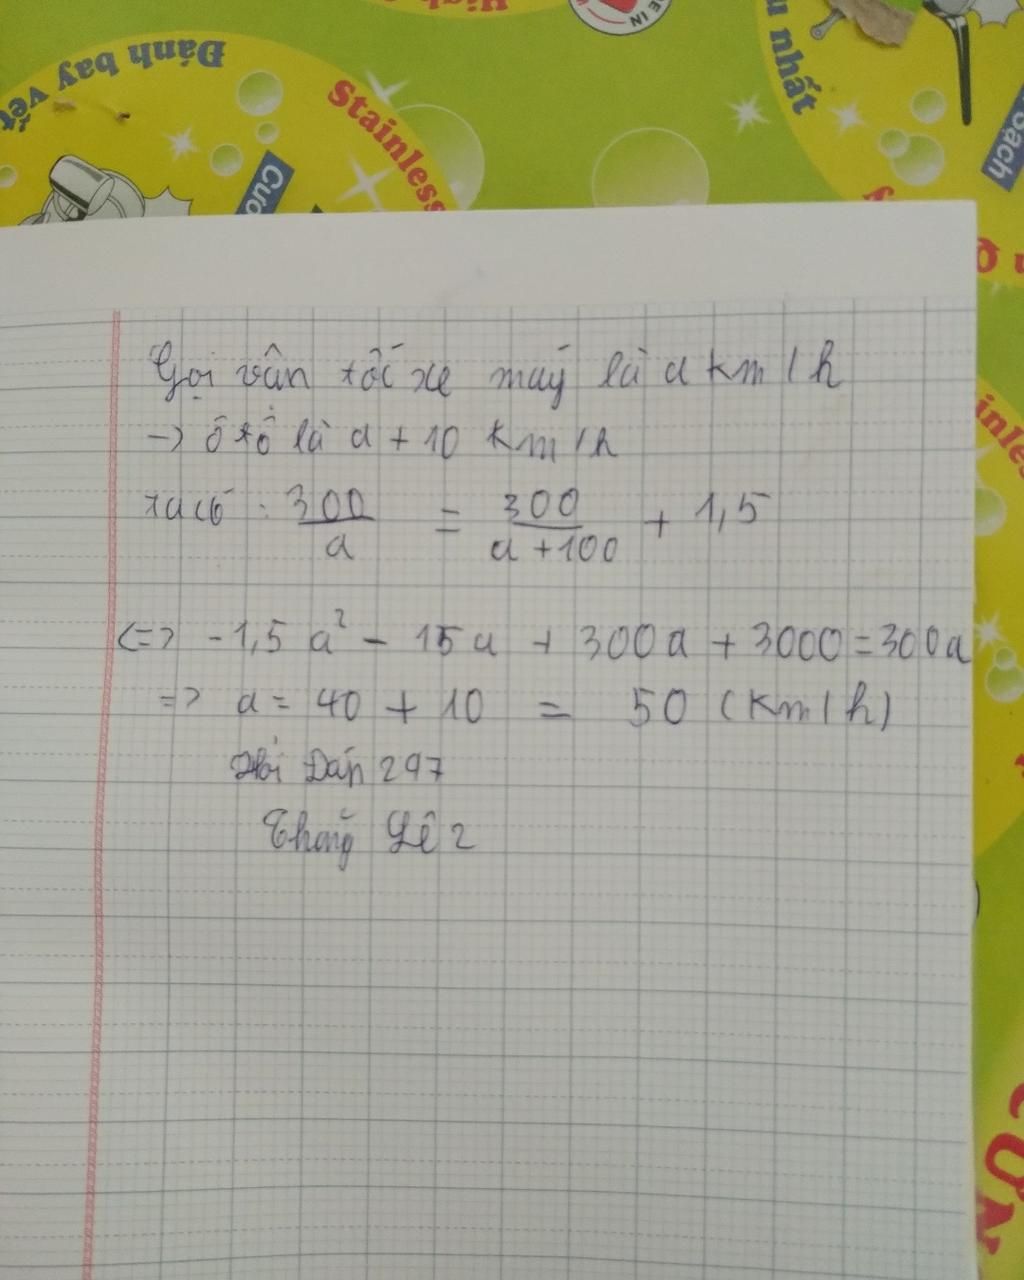 Đánh bay vết
Stainless
High
E IN
u nhất
Cuc
bạch
inless
Gọi vân tốc xe máy là a km/h
-> ô tô là a + 10 km/h
ta có : 300/a = 300/(a + 100) + 1,5
<=> -1,5 a² - 15a + 300a + 3000 = 300a
=> a = 40 + 10 = 50 (km/h)
Hỏi Đáp 247
Thắng Lê 2